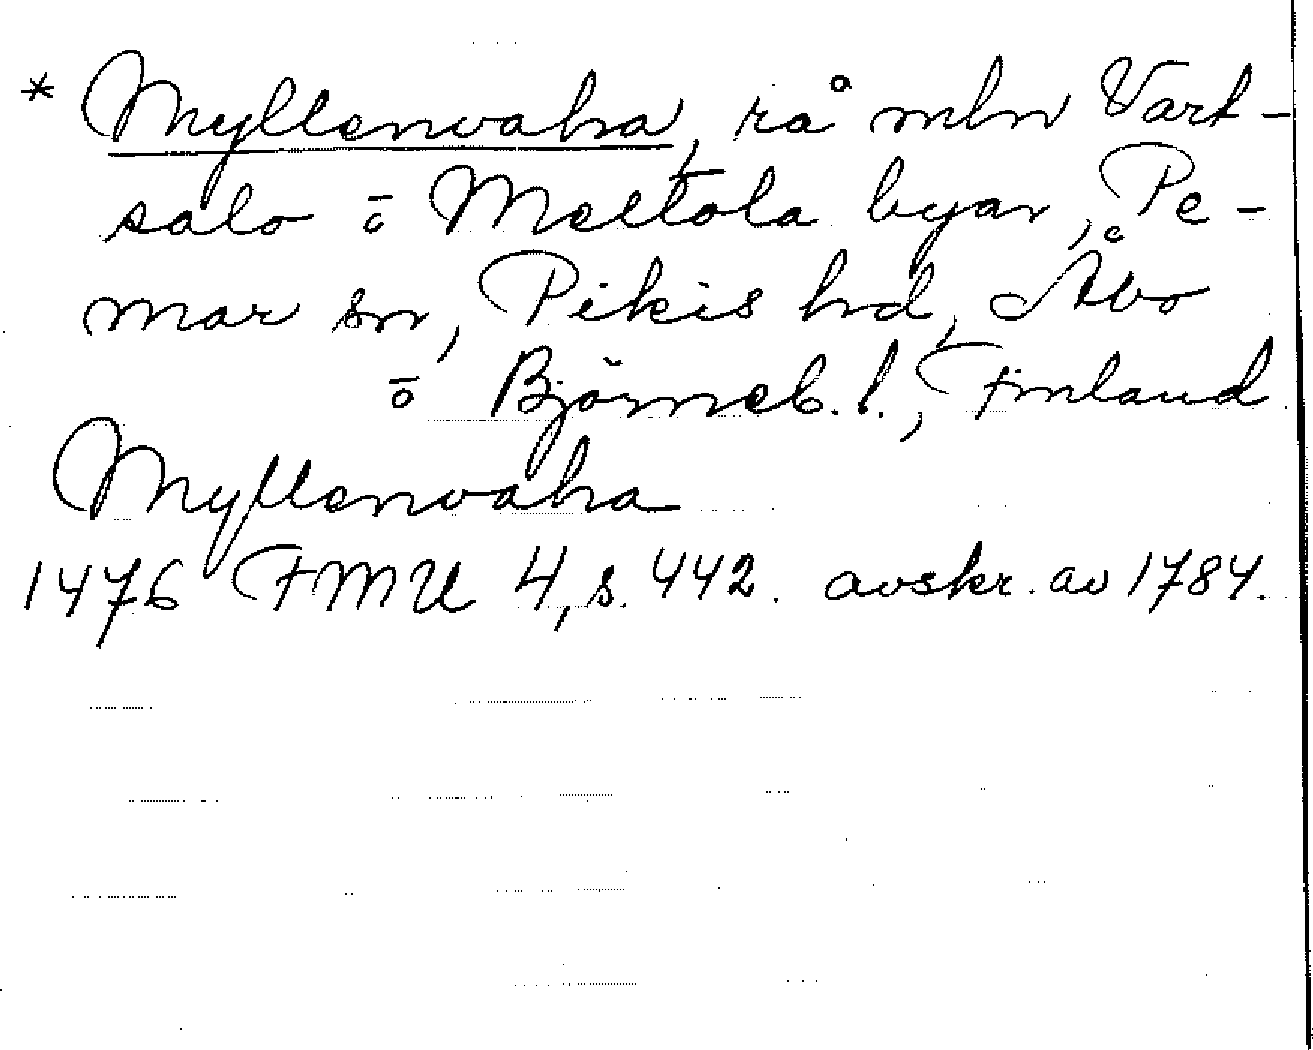 * Myllenvaha, rå mln Vart-
salo ō Meltola byar, Pe-
mar sn, Pikis hd, Åbo
ō Björneb. l., Finland
Myllenvaha
1476 FMU 4, s. 442. avskr. av 1784.